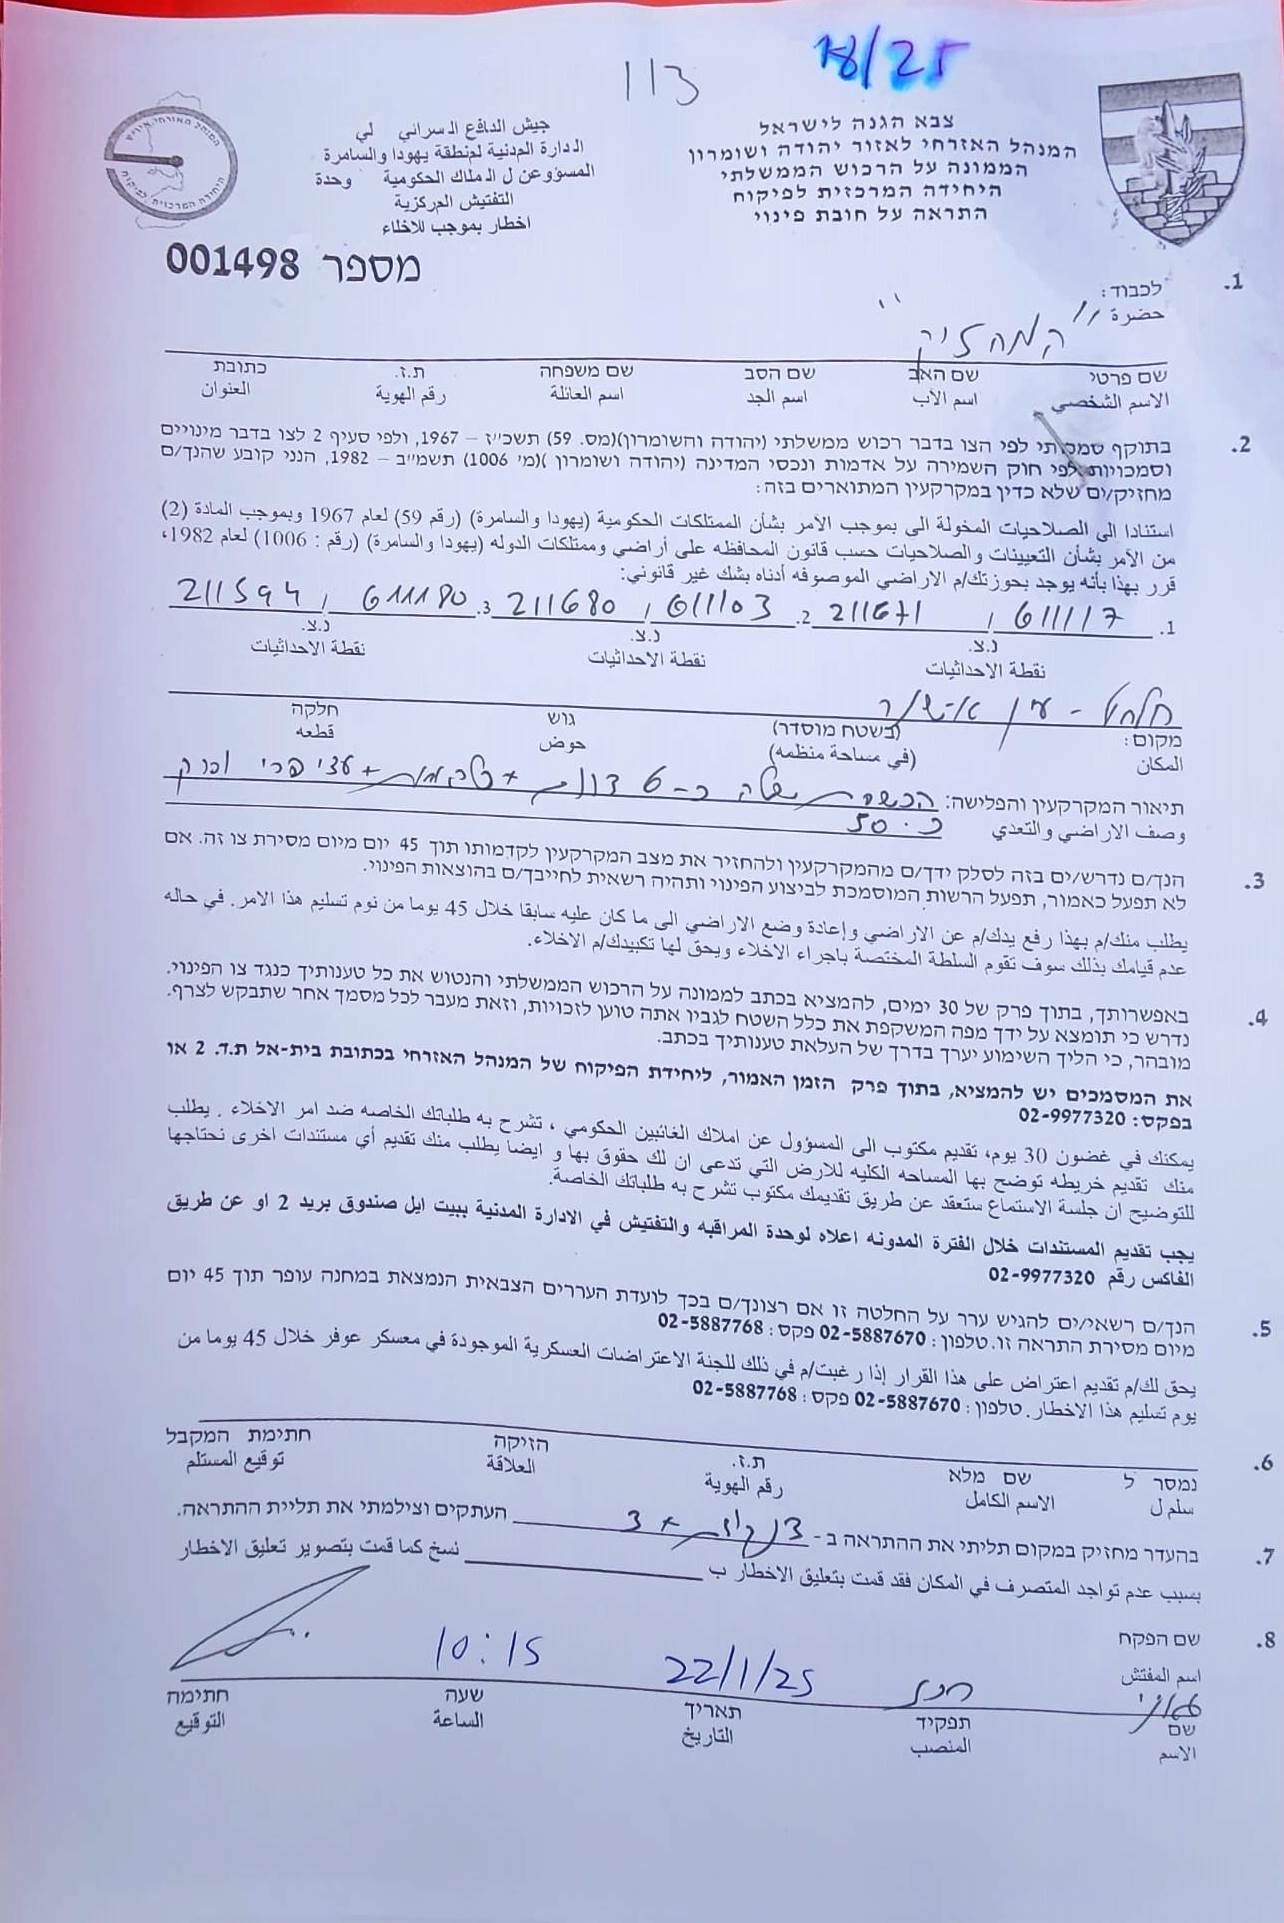 18/25
113
צבא הגנה לישראל
המנהל האזרחי לאזור יהודה ושומרון
הממונה על הרכוש הממשלתי
היחידה המרכזית לפיקוח
התראה על חובת פינוי
جيش الدافع السراني لي
الدارة المدنية لمنطقة يهودا والسامرة
المسؤوعن ل الملاك الحكومية وحدة
التفتيش المركزية
اخطار بموجب للاخلاء
מספר 001498
1. לכבוד:
حضرة
"המחזיק"
שם פרטי שם האב שם הסב שם משפחה ת.ז. כתובת
الاسم الشخصي اسم الأب اسم الجد اسم العائلة رقم الهوية العنوان
2. בתוקף סמכותי לפי הצו בדבר רכוש ממשלתי (יהודה והשומרון)(מס. 59) תשכ״ז – 1967, ולפי סעיף 2 לצו בדבר מינויים
וסמכויות לפי חוק השמירה על אדמות ונכסי המדינה (יהודה ושומרון )(מ׳ 1006) תשמ״ב – 1982, הנני קובע שהנך/ם
מחזיק/ים שלא כדין במקרקעין המתוארים בזה:
استنادا الى الصلاحيات المخولة الى بموجب الأمر بشأن الممتلكات الحكومية (يهودا والسامرة) (رقم 59) لعام 1967 وبموجب المادة (2)
من الأمر بشأن التعيينات والصلاحيات حسب قانون المحافظه على أراضي وممتلكات الدوله (يهودا والسامرة) (رقم : 1006) لعام 1982،
قرر بهذا بأنه يوجد بحوزتك/م الاراضي الموصوفه أدناه بشك غير قانوني:
1. 611117 / 211671 2. 611103 / 211680 3. 611180 / 211594
נ.צ. נ.צ. נ.צ.
نقطة الاحداثيات نقطة الاحداثيات نقطة الاحداثيات
חלחול - עין
מקום: (בשטח מוסדר) גוש חלקה
المكان (في مساحة منظمه) حوض قطعه
תיאור המקרקעין והפלישה: הכשרת שטח כ-6 דונם + + עצי פרי
وصف الاراضي والتعدي כ-50
3. הנך/ם נדרש/ים בזה לסלק ידך/ם מהמקרקעין ולהחזיר את מצב המקרקעין לקדמותו תוך 45 יום מיום מסירת צו זה. אם
לא תפעל כאמור, תפעל הרשות המוסמכת לביצוע הפינוי ותהיה רשאית לחייבך/ם בהוצאות הפינוי.
يطلب منك/م بهذا رفع يدك/م عن الاراضي وإعادة وضع الاراضي الى ما كان عليه سابقا خلال 45 يوما من نوم تسليم هذا الامر. في حاله
عدم قيامك بذلك سوف تقوم السلطة المختصة باجراء الاخلاء ويحق لها تكبيدك/م الاخلاء.
4. באפשרותך, בתוך פרק של 30 ימים, להמציא בכתב לממונה על הרכוש הממשלתי והנטוש את כל טענותיך כנגד צו הפינוי.
נדרש כי תומצא על ידך מפה המשקפת את כלל השטח לגביו אתה טוען לזכויות, וזאת מעבר לכל מסמך אחר שתבקש לצרף.
מובהר, כי הליך השימוע יערך בדרך של העלאת טענותיך בכתב.
את המסמכים יש להמציא, בתוך פרק הזמן האמור, ליחידת הפיקוח של המנהל האזרחי בכתובת בית-אל ת.ד. 2 או
בפקס: 02-9977320
يمكنك في غضون 30 يوم، تقديم مكتوب الى المسؤول عن املاك الغائبين الحكومي ، تشرح به طلباتك الخاصه ضد امر الاخلاء . يطلب
منك تقديم خريطه توضح بها المساحه الكليه للارض التي تدعى ان لك حقوق بها و ايضا يطلب منك تقديم أي مستندات اخرى نحتاجها
للتوضيح ان جلسة الاستماع ستعقد عن طريق تقديمك مكتوب تشرح به طلباتك الخاصة.
يجب تقديم المستندات خلال الفترة المدونه اعلاه لوحدة المراقبه والتفتيش في الادارة المدنية ببيت ايل صندوق بريد 2 او عن طريق
الفاكس رقم 02-9977320
5. הנך/ם רשאי/ים להגיש ערר על החלטה זו אם רצונך/ם בכך לועדת העררים הצבאית הנמצאת במחנה עופר תוך 45 יום
מיום מסירת התראה זו. טלפון: 02-5887670 פקס: 02-5887768
يحق لك/م تقديم اعتراض على هذا القرار إذا رغبت/م في ذلك للجنة الاعتراضات العسكرية الموجودة في معسكر عوفر خلال 45 يوما من
يوم تسليم هذا الاخطار. טלפון: 02-5887670 פקס: 02-5887768
6. נמסר ל שם מלא ת.ז. הזיקה חתימת המקבל
سلم ل الاسم الكامل رقم الهوية العلاقة توقيع المستلم
7. בהעדר מחזיק במקום תליתי את ההתראה ב - 3 העתקים וצילמתי את תליית ההתראה.
بسبب عدم تواجد المتصرف في المكان فقد قمت بتعليق الاخطار ب نسخ كما قمت بتصوير تعليق الاخطار
8. שם הפקח
اسم المفتش
22/1/25 10:15
שם תפקיד תאריך שעה חתימה
الاسم المنصب التاريخ الساعة التوقيع